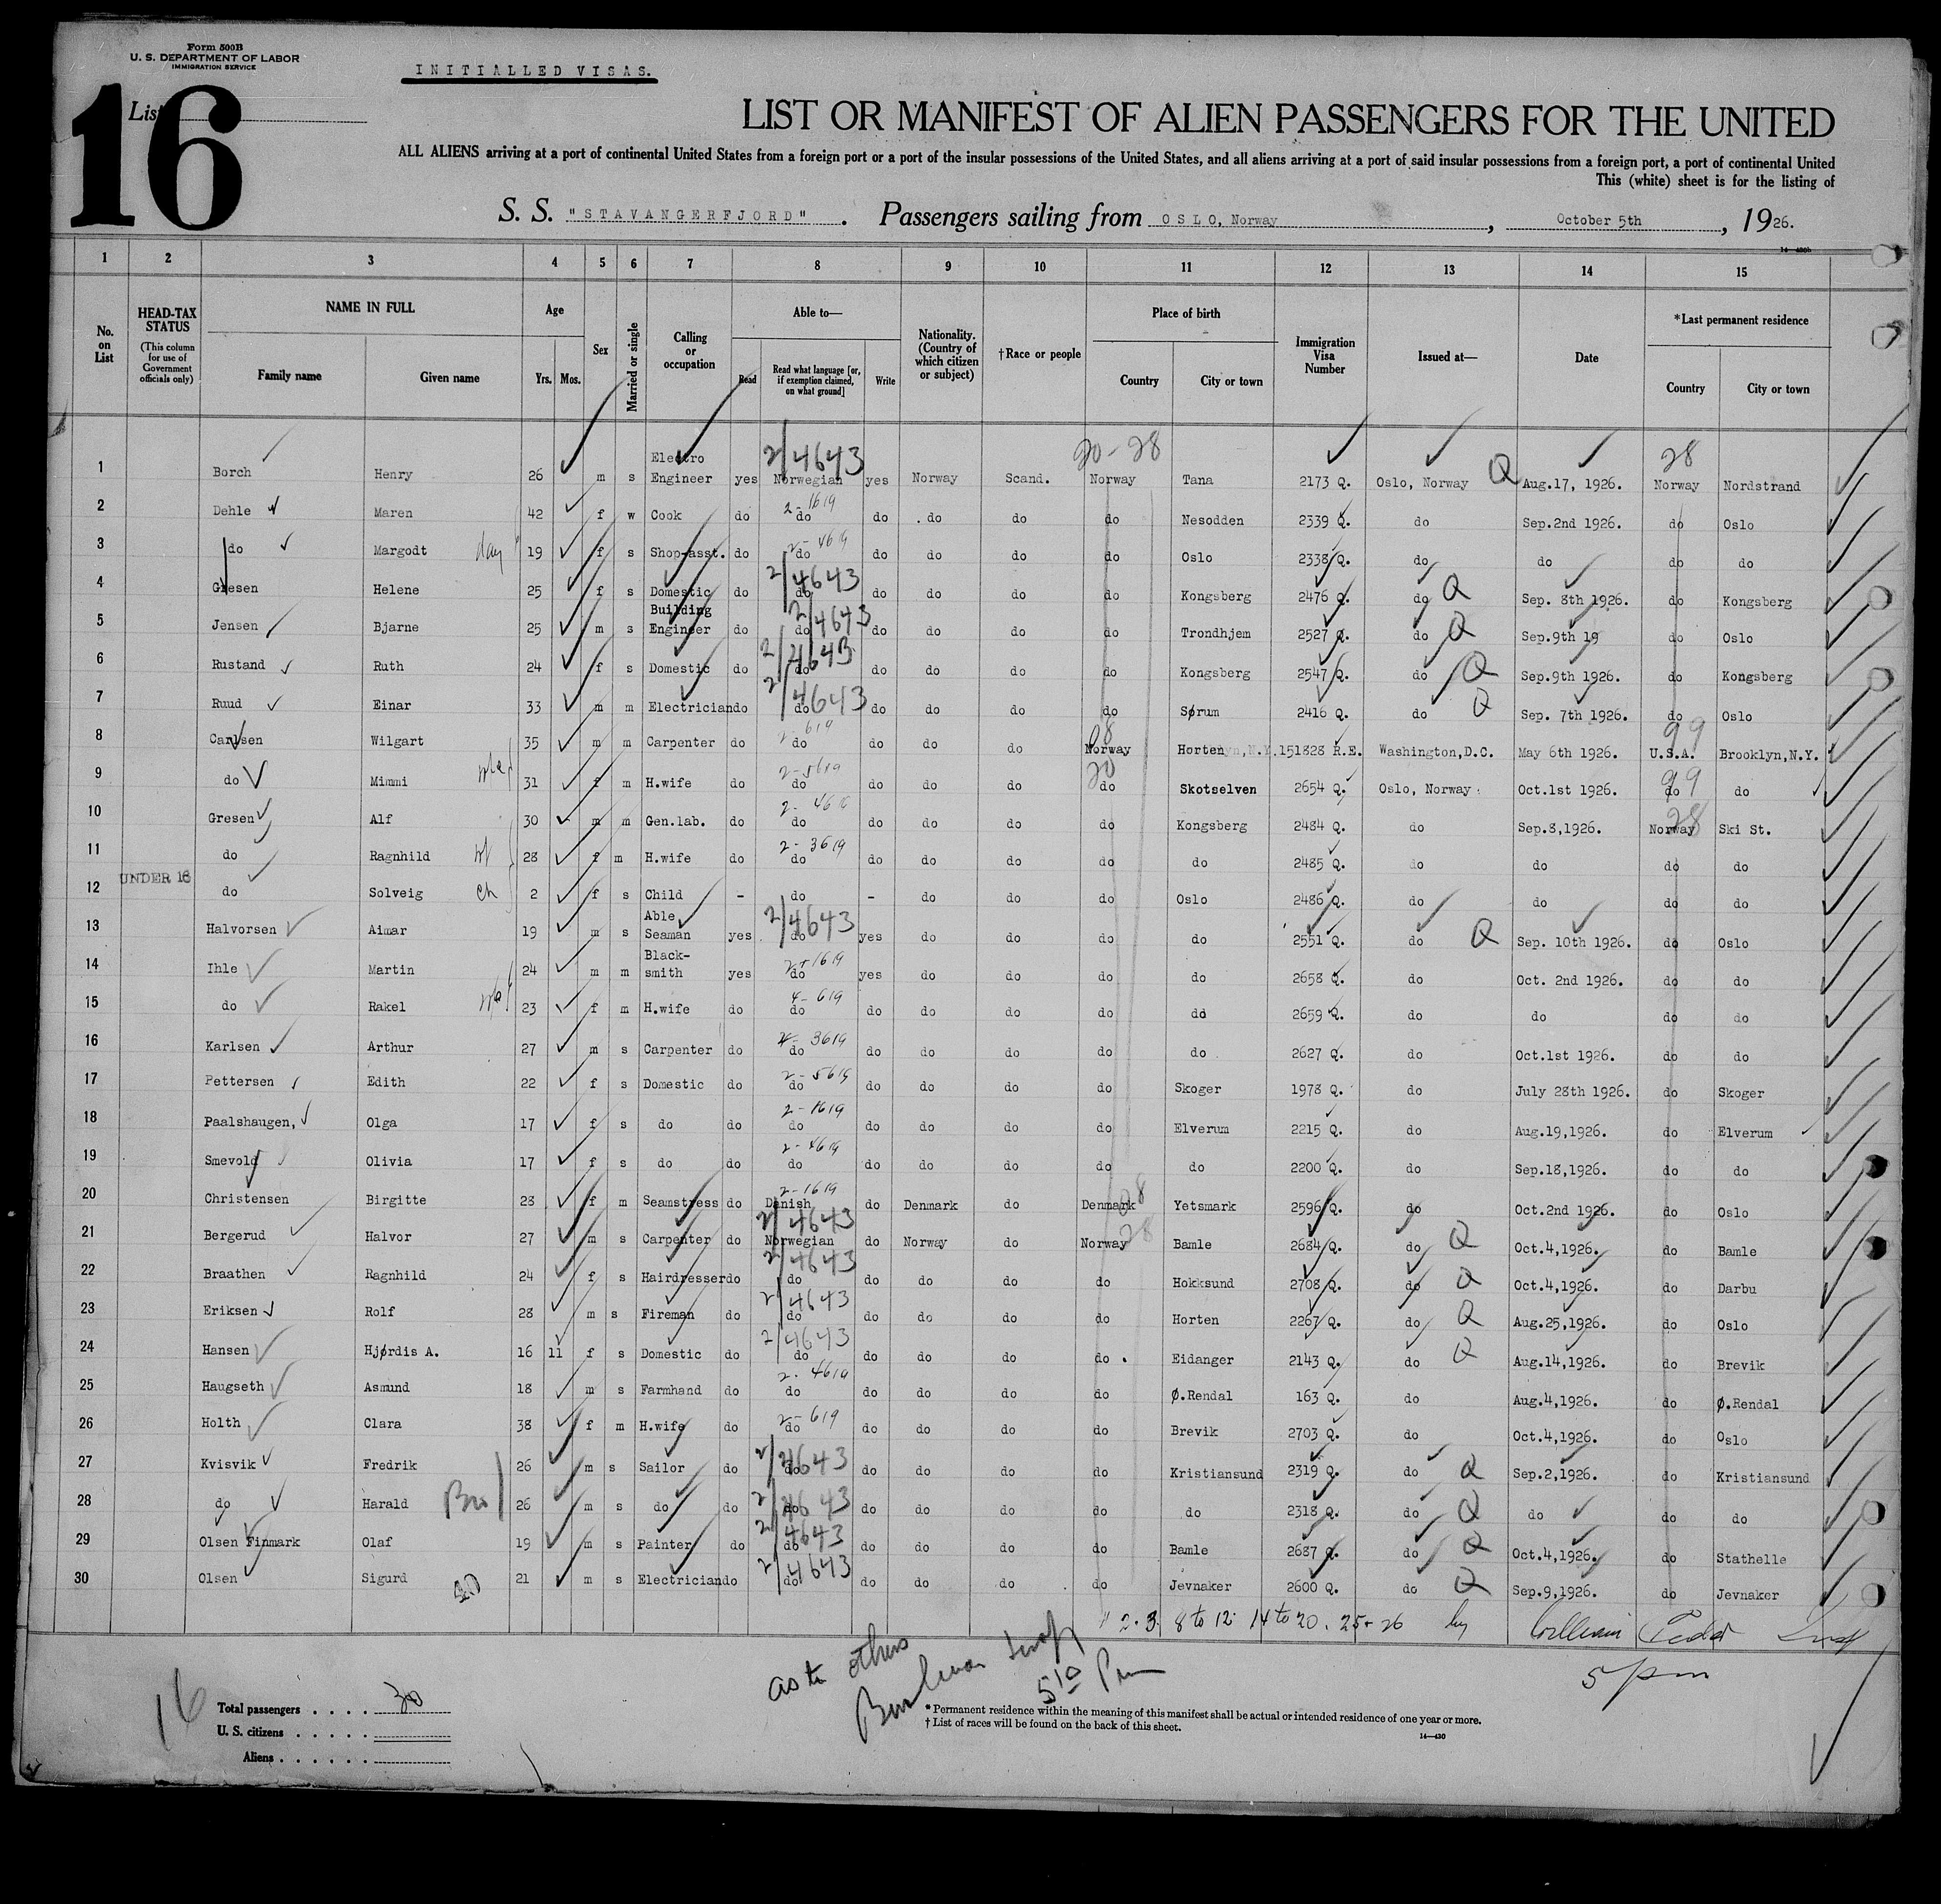 Form 500B
U. S. DEPARTMENT OF LABOR
IMMIGRATION SERVICE
INITIALLED VISAS.
16
List
LIST OR MANIFEST OF ALIEN PASSENGERS FOR THE UNITED
ALL ALIENS arriving at a port of continental United States from a foreign port or a port of the insular possessions of the United States, and all aliens arriving at a port of said insular possessions from a foreign port, a port of continental United
This (white) sheet is for the listing of
S. S. "STAVANGERFJORD". Passengers sailing from OSLO, Norway, October 5th, 1926.
14—430b
1 2 3 4 5 6 7 8 9 10 11 12 13 14 15
No. on List
HEAD-TAX STATUS (This column for use of Government officials only)
NAME IN FULL Family name Given name
Age Yrs. Mos.
Sex
Married or single
Calling or occupation
Able to— Read Read what language [or, if exemption claimed, on what ground] Write
Nationality. (Country of which citizen or subject)
†Race or people
Place of birth Country City or town
Immigration Visa Number
Issued at—
Date
*Last permanent residence Country City or town
20-28 28
1 Borch Henry 26 m s Electro Engineer yes 2/4643 Norwegian yes Norway Scand. Norway Tana 2173 Q. Oslo, Norway Q Aug.17, 1926. Norway Nordstrand
2 Dehle Maren 42 f w Cook do 2-1619 do do do do do Nesodden 2339 Q. do Sep.2nd 1926. do Oslo
3 do Margodt 19 f s Shop-asst. do 2-4619 do do do do do Oslo 2338 Q. do do do do
4 Gresen Helene 25 f s Domestic do 2/4643 do do do do do Kongsberg 2476 Q. do Q Sep. 8th 1926. do Kongsberg
5 Jensen Bjarne 25 m s Building Engineer do 2/4643 do do do do do Trondhjem 2527 Q. do Q Sep.9th 19 do Oslo
6 Rustand Ruth 24 f s Domestic do 2/4643 do do do do do Kongsberg 2547 Q. do Q Sep.9th 1926. do Kongsberg
7 Ruud Einar 33 m m Electrician do 2/4643 do do do do do Sørum 2416 Q. do Q Sep. 7th 1926. do Oslo
8 Carlsen Wilgart 35 m m Carpenter do 2-619 do do do do Norway Horten 151828 R.E. Washington,D.C. May 6th 1926. 99 U.S.A. Brooklyn,N.Y.
9 do Mimmi 31 f m H.wife do 2-5619 do do do do 20 do Skotselven 2654 Q. Oslo, Norway. Oct.1st 1926. 99 do do
10 Gresen Alf 30 m m Gen.lab. do do do do do do Kongsberg 2484 Q. do Sep.8,1926. 28 Norway Ski St.
11 do Ragnhild 28 f m H.wife do 2-3619 do do do do do do 2485 Q. do do do do
UNDER 16
12 do Solveig ch 2 f s Child - do - do do do Oslo 2486 Q. do do do do
13 Halvorsen Aimar 19 m s Able Seaman yes 2/4643 do yes do do do do 2551 Q. do Q Sep. 10th 1926. do Oslo
14 Ihle Martin 24 m m Black-smith yes do yes do do do do 2658 Q. do Oct. 2nd 1926. do do
15 do Rakel 23 f m H.wife do do do do do do do 2659 Q. do do do do
16 Karlsen Arthur 27 m s Carpenter do do do do do do do 2627 Q. do Oct.1st 1926. do do
17 Pettersen Edith 22 f s Domestic do 2-5619 do do do do do Skoger 1978 Q. do July 28th 1926. do Skoger
18 Paalshaugen, Olga 17 f s do do 2-1619 do do do do do Elverum 2215 Q. do Aug.19,1926. do Elverum
19 Smevold Olivia 17 f s do do 2-4619 do do do do do do 2200 Q. do Sep.18,1926. do do
20 Christensen Birgitte 28 f m Seamstress do 2-1619 Danish do Denmark do Denmark Yetsmark 2596 Q. do Oct.2nd 1926. do Oslo
21 Bergerud Halvor 27 m s Carpenter do 2/4643 Norwegian do Norway do Norway 28 Bamle 2684 Q. do Q Oct.4,1926. do Bamle
22 Braathen Ragnhild 24 f s Hairdresser do 2/4643 do do do do do Hokksund 2708 Q. do Q Oct.4,1926. do Darbu
23 Eriksen Rolf 28 m s Fireman do 2/4643 do do do do do Horten 2267 Q. do Q Aug.25,1926. do Oslo
24 Hansen Hjørdis A. 16 11 f s Domestic do 2/4643 do do do do do Eidanger 2143 Q. do Q Aug.14,1926. do Brevik
25 Haugseth Asmund 18 m s Farmhand do 2-4619 do do do do do Ø.Rendal 163 Q. do Aug.4,1926. do Ø.Rendal
26 Holth Clara 38 f m H.wife do 2-619 do do do do do Brevik 2703 Q. do Oct.4,1926. do Oslo
27 Kvisvik Fredrik 26 m s Sailor do 2/4643 do do do do do Kristiansund 2319 Q. do Q Sep.2,1926. do Kristiansund
28 do Harald Bro 26 m s do do 2/4643 do do do do do do 2318 Q. do Q do do do
29 Olsen Finmark Olaf 19 m s Painter do 2/4643 do do do do do Bamle 2687 Q. do Q Oct.4,1926. do Stathelle
30 Olsen Sigurd 21 m s Electrician do 2/4643 do do do do do Jevnaker 2600 Q. do Q Sep.9,1926. do Jevnaker
2.3. 8 to 12. 14 to 20. 25+26 by William
as to others
5 10 Pm
5 pm
16
Total passengers . . . . 30
U. S. citizens . . . . .
Aliens . . . . . .
* Permanent residence within the meaning of this manifest shall be actual or intended residence of one year or more.
† List of races will be found on the back of this sheet.
14—430